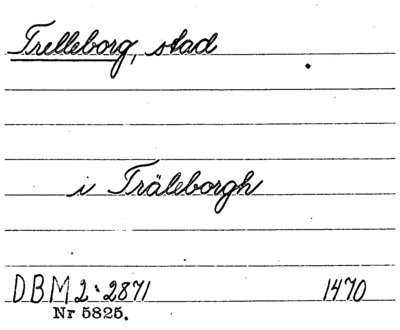 Trelleborg, stad
i Träleborgh
DBM 2:2871 1470
Nr 5825.